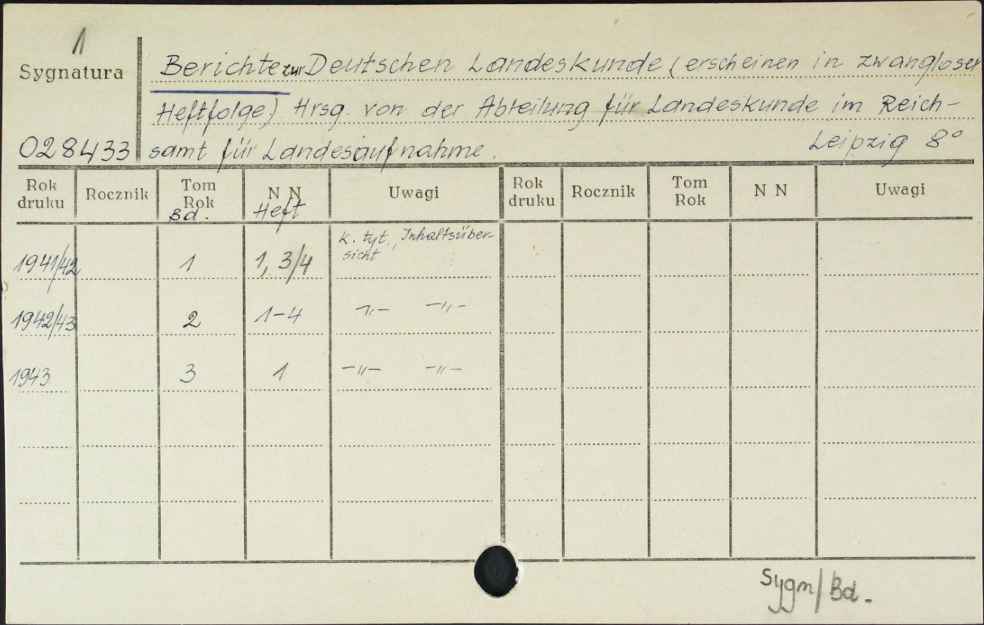 1
Sygnatura
028433
Berichte zur Deutschen Landeskunde (erscheinen in zwangloser
Heftfolge) Hrsg. von der Abteilung für Landeskunde im Reich-
samt für Landesaufnahme.
Leipzig 8°
Rok druku Rocznik Tom Rok Bd. N N Heft Uwagi Rok druku Rocznik Tom Rok N N Uwagi
1941/42 1 1, 3/4 k. tyt., Inhaltsüber-
sicht
1942/43 2 1-4 -"- -"-
1943 3 1 -"- -"-
Sygn/Bd.